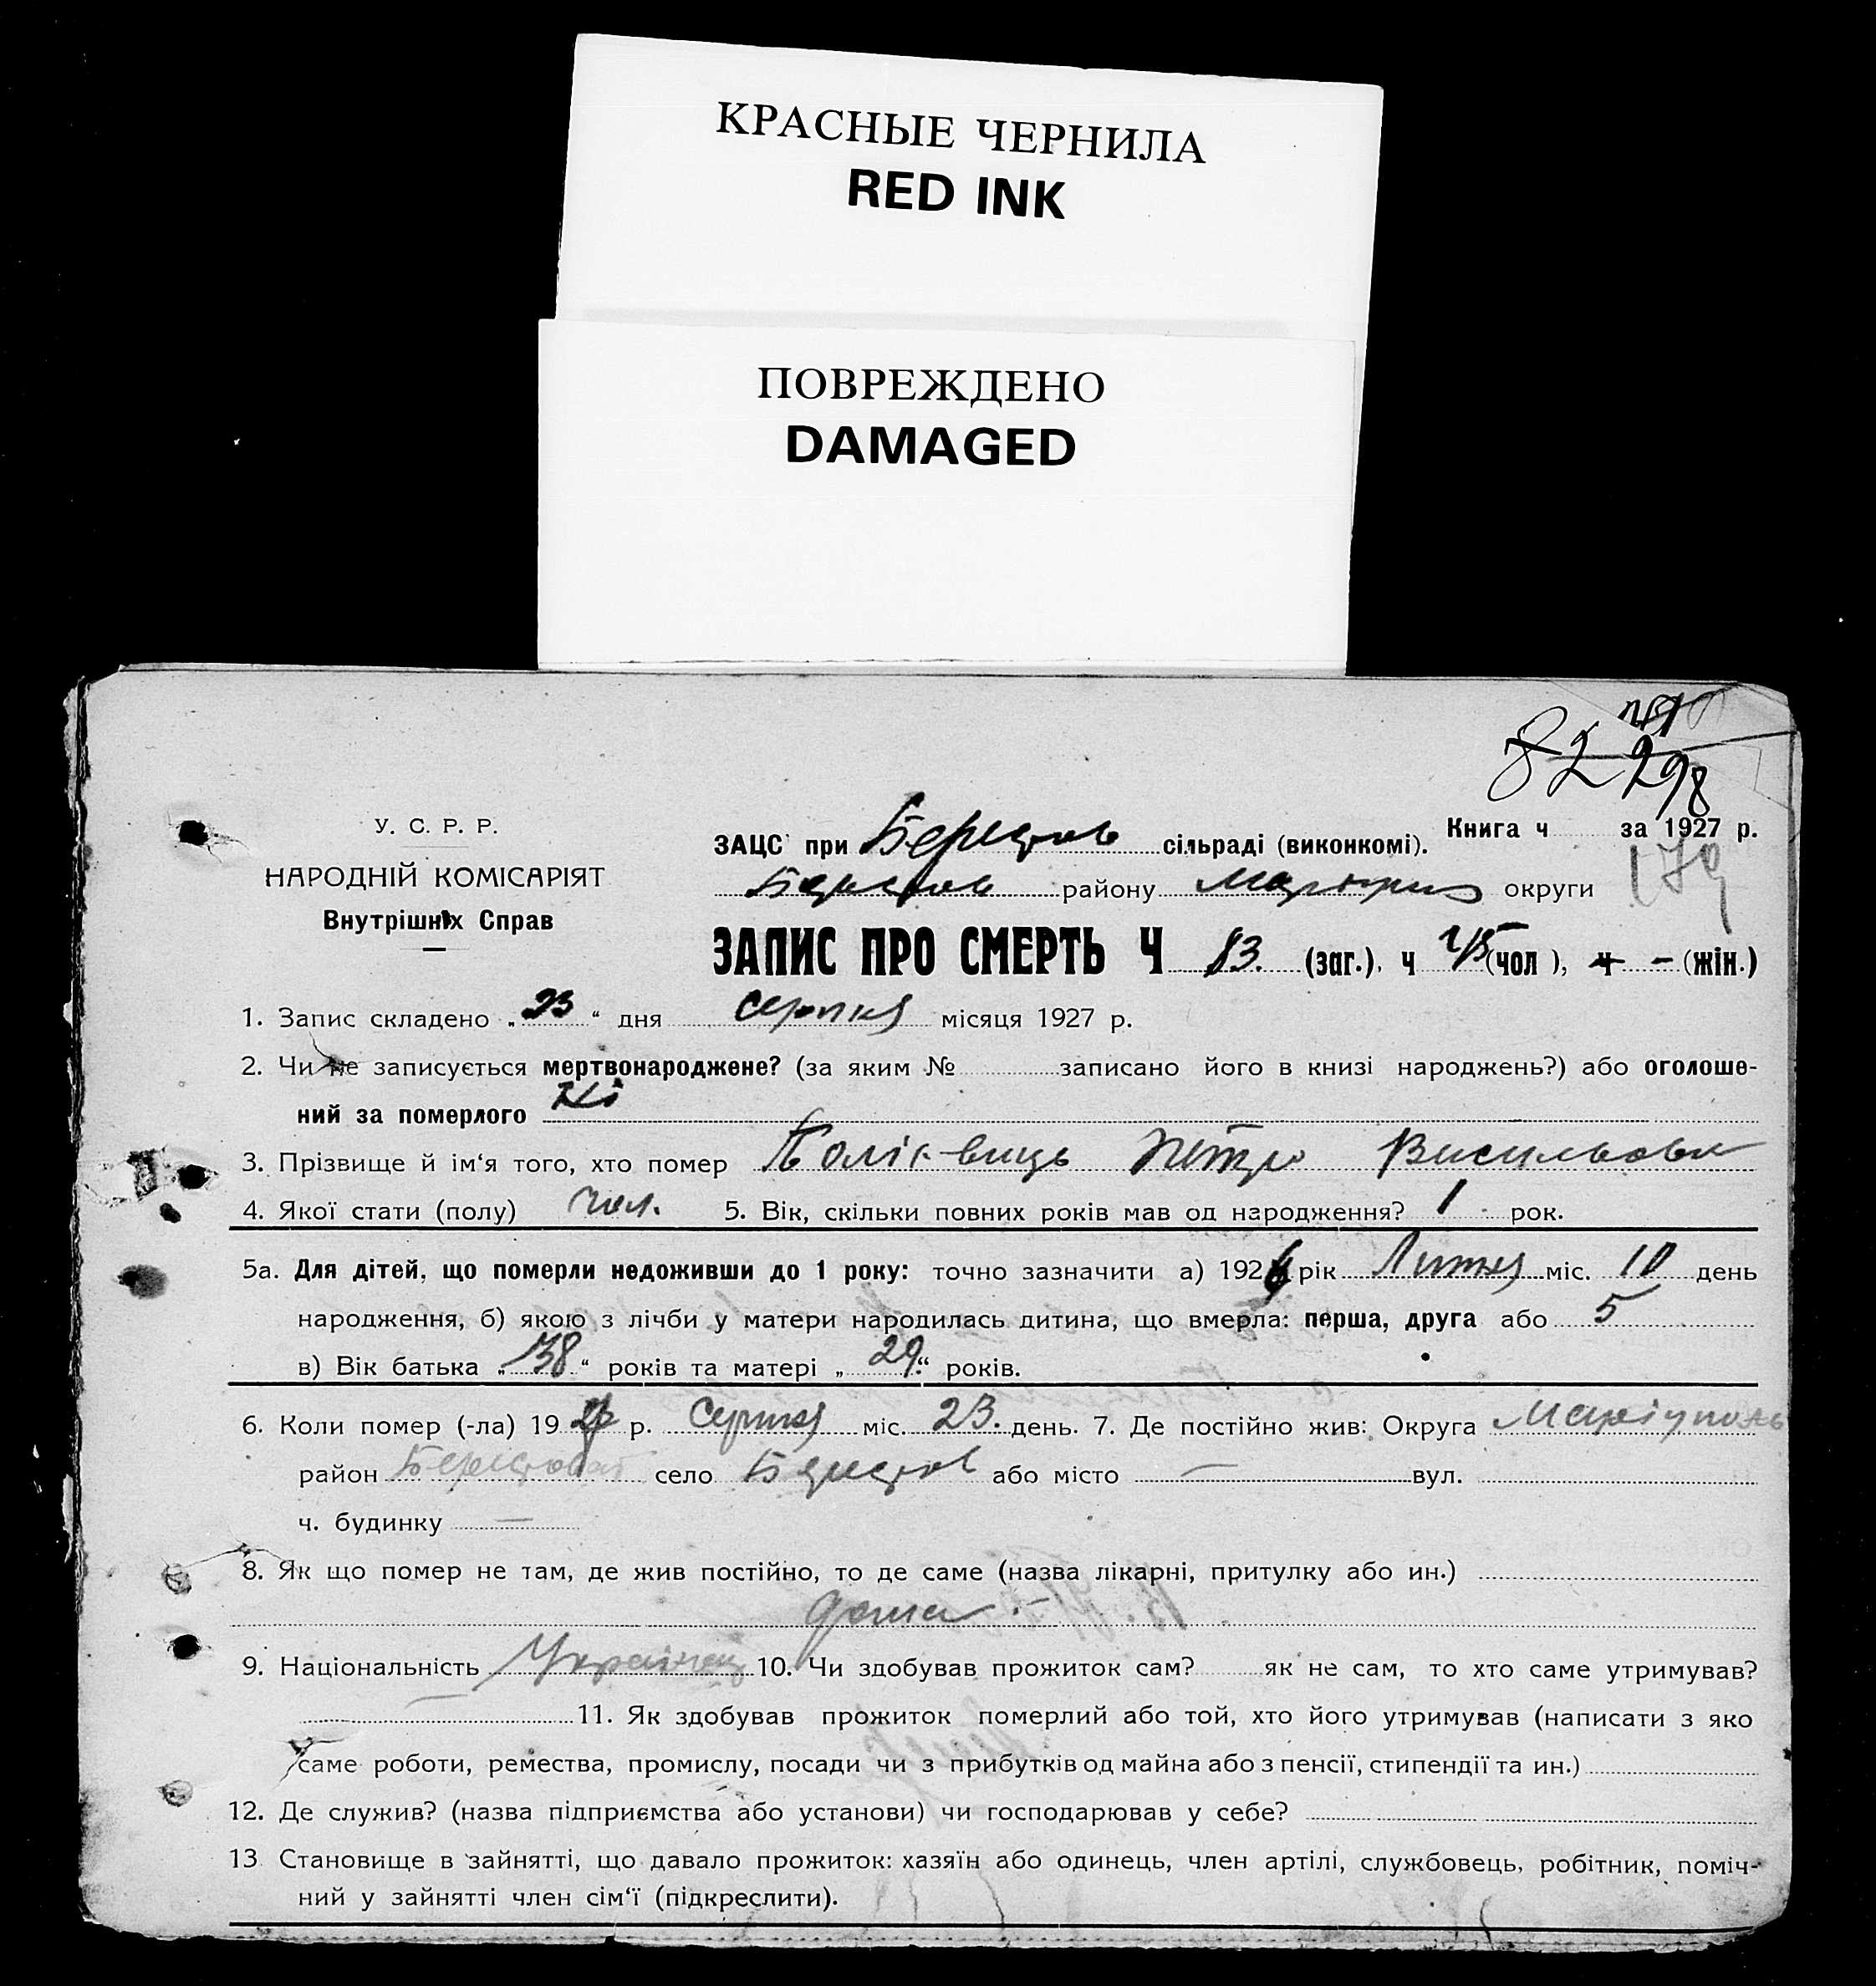 КРАСНЫЕ ЧЕРНИЛА
RED INK
ПОВРЕЖДЕНО
DAMAGED
82 298
У. С. Р. Р.
НАРОДНІЙ КОМІСАРІЯТ
Внутрішніх Справ
Книга ч за 1927 р.
179
ЗАЦС при Берестов сільраді (виконкомі).
Берестов району Маріуп округи
ЗАПИС ПРО СМЕРТЬ Ч 83. (заг.), ч 45 (чол), ч - (жін.)
1. Запис складено „23“ дня серпня місяця 1927 р.
2. Чи не записується мертвонароджене? (за яким № записано його в книзі народжень?) або оголоше-
ний за померлого Ні
3. Прізвище й ім‘я того, хто помер Петро Васильович
4. Якої стати (полу) чол. 5. Вік, скільки повних років мав од народження? 1 рок.
5а. Для дітей, що померли недоживши до 1 року: точно зазначити а) 1926 рік Липня міс. 10 день
народження, б) якою з лічби у матери народилась дитина, що вмерла: перша, друга або 5
в) Вік батька „38“ років та матері „29“ років.
6. Коли помер (-ла) 1927 р. Серпня міс. 23. день. 7. Де постійно жив: Округа Маріуполь
район Берестоват село Берестов або місто — вул.
ч. будинку —
8. Як що помер не там, де жив постійно, то де саме (назва лікарні, притулку або ин.)
дома –
9. Національність Українец 10. Чи здобував прожиток сам? як не сам, то хто саме утримував?
— 11. Як здобував прожиток померлий або той, хто його утримував (написати з яко
саме роботи, ремества, промислу, посади чи з прибутків од майна або з пенсії, стипендії та ин.)
12. Де служив? (назва підприємства або установи) чи господарював у себе?
13 Становище в зайнятті, що давало прожиток: хазяїн або одинець, член артілі, службовець, робітник, поміч-
ний у зайнятті член сім‘ї (підкреслити).